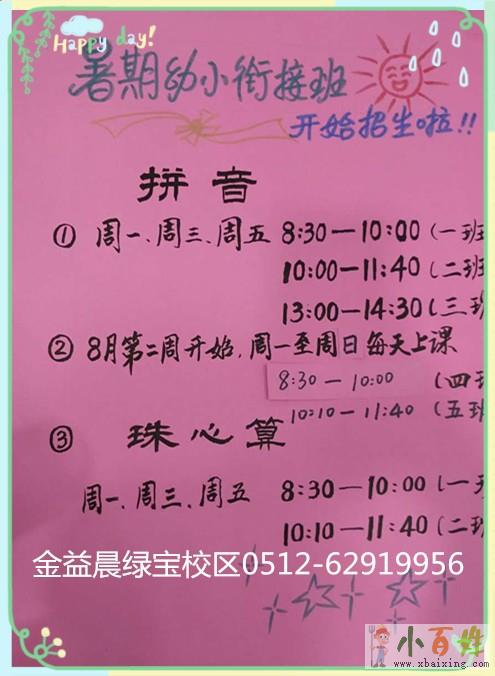 Happy day!
暑期幼小衔接班
开始招生啦!!
拼音
① 周一、周三、周五 8:30—10:00 (一班
10:00—11:40 (二班
13:00—14:30 (三班
② 8月第二周开始,周一至周日每天上课
8:30—10:00 (四班
10:10—11:40 (五班
③ 珠心算
周一、周三、周五 8:30—10:00 (一
10:10—11:40 (二班
金益晨绿宝校区0512-62919956
小百姓
www.xbaixing.com